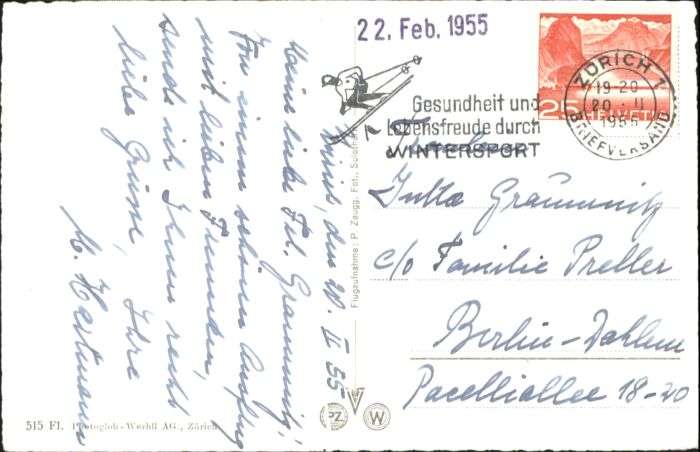 22. Feb. 1955
ZÜRICH 1
19-20
20. II
1955
BRIEFVERSAND
25 HELVETIA
Gesundheit und
Lebensfreude durch
WINTERSPORT
Zürich, den 20. II 55
Meine liebe Frl. Graumnitz!
Von einem schönen Ausflug
mit lieben Freunden,
sende ich Ihnen recht
liebe Grüsse, Ihre
M. Hartmann
Fräulein
Jutta Graumnitz
c/o Familie Preller
Berlin-Dahlem
Pacelliallee 18-20
Flugaufnahme: P. Zaugg, Fot., Solothurn
515 Fl. Photoglob-Wehrli AG., Zürich
PZ
W